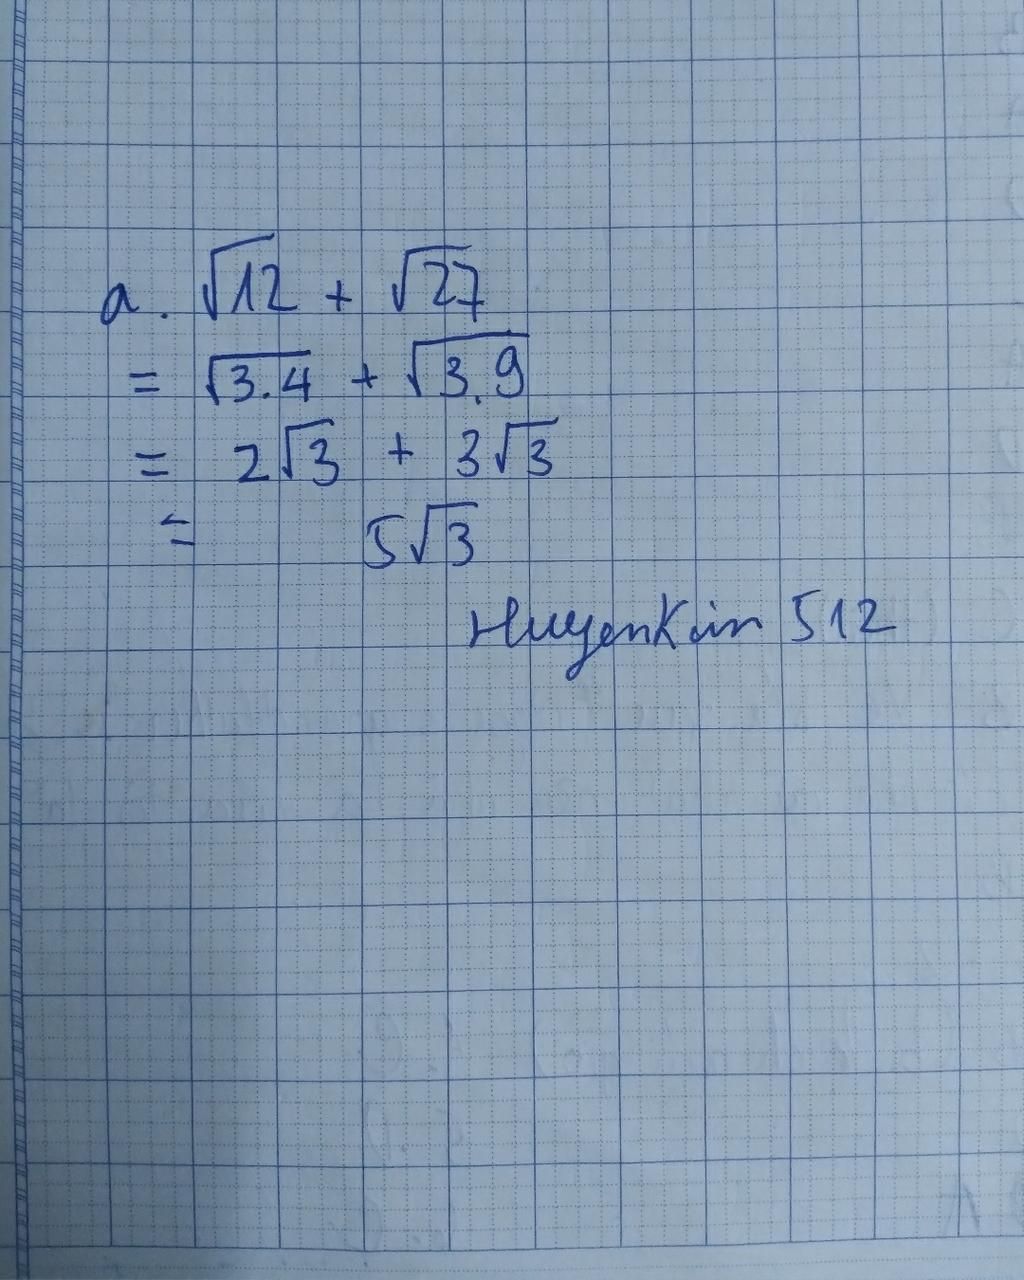 a. √12 + √27
= √3.4 + √3.9
= 2√3 + 3√3
= 5√3
HuyenKim 512